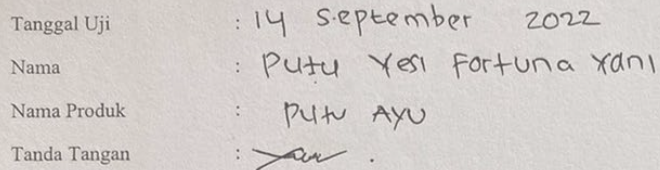 Tanggal Uji : 14 September 2022
Nama : Putu Yesi Fortuna Yani
Nama Produk : Putu AYU
Tanda Tangan :